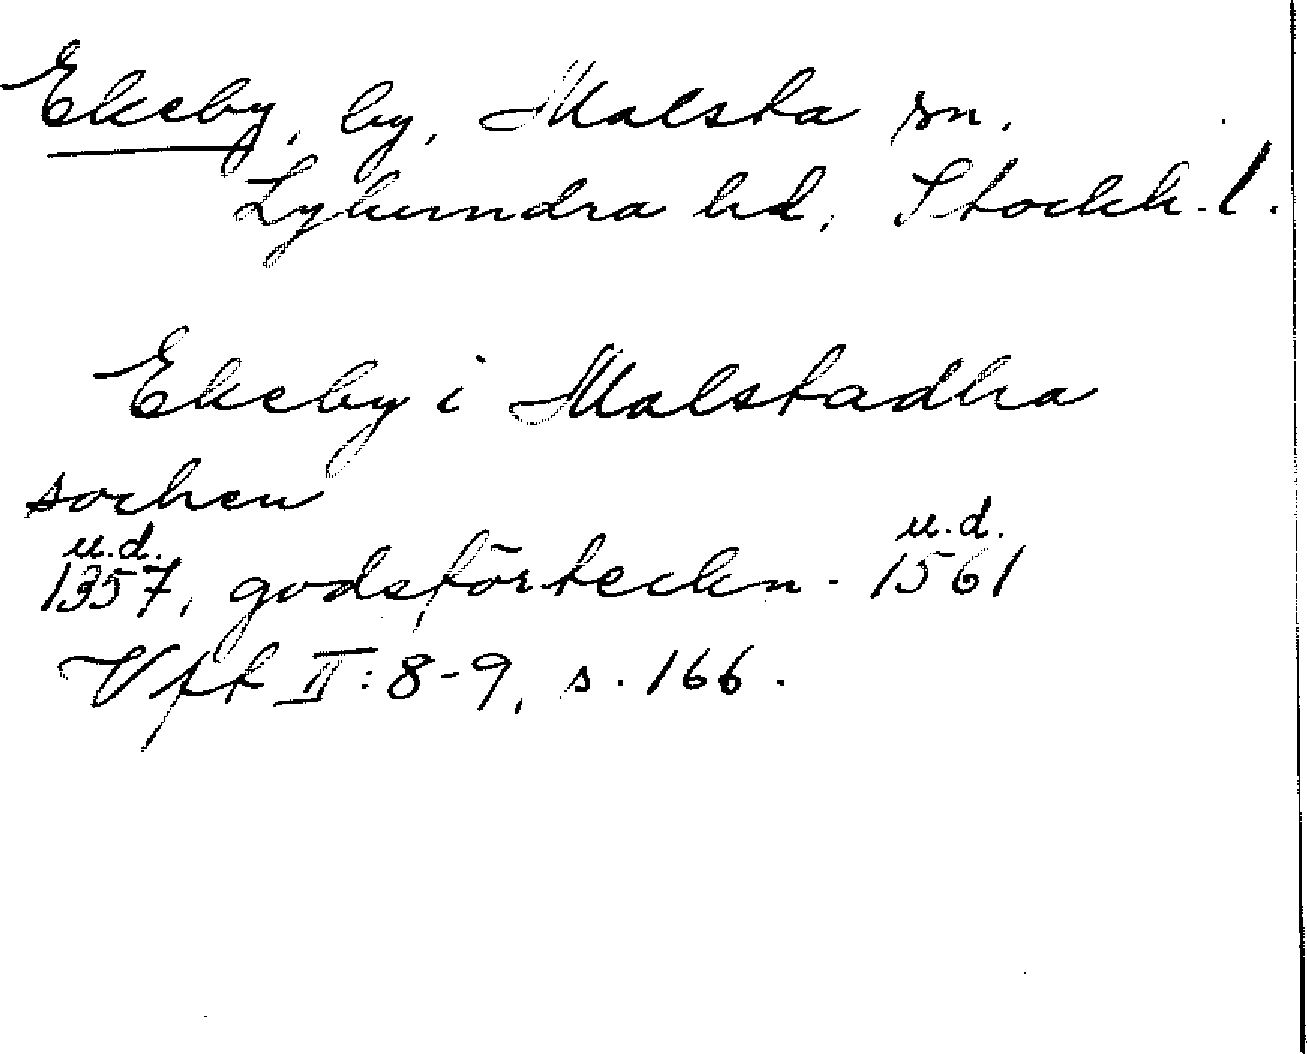 Ekeby, by, Malsta sn.
Lyhundra hd, Stockh. l.
Ekeby i Malstadha
sochen
u.d. u.d.
1357, godsförteckn. 1561
Vff II: 8-9, s. 166.